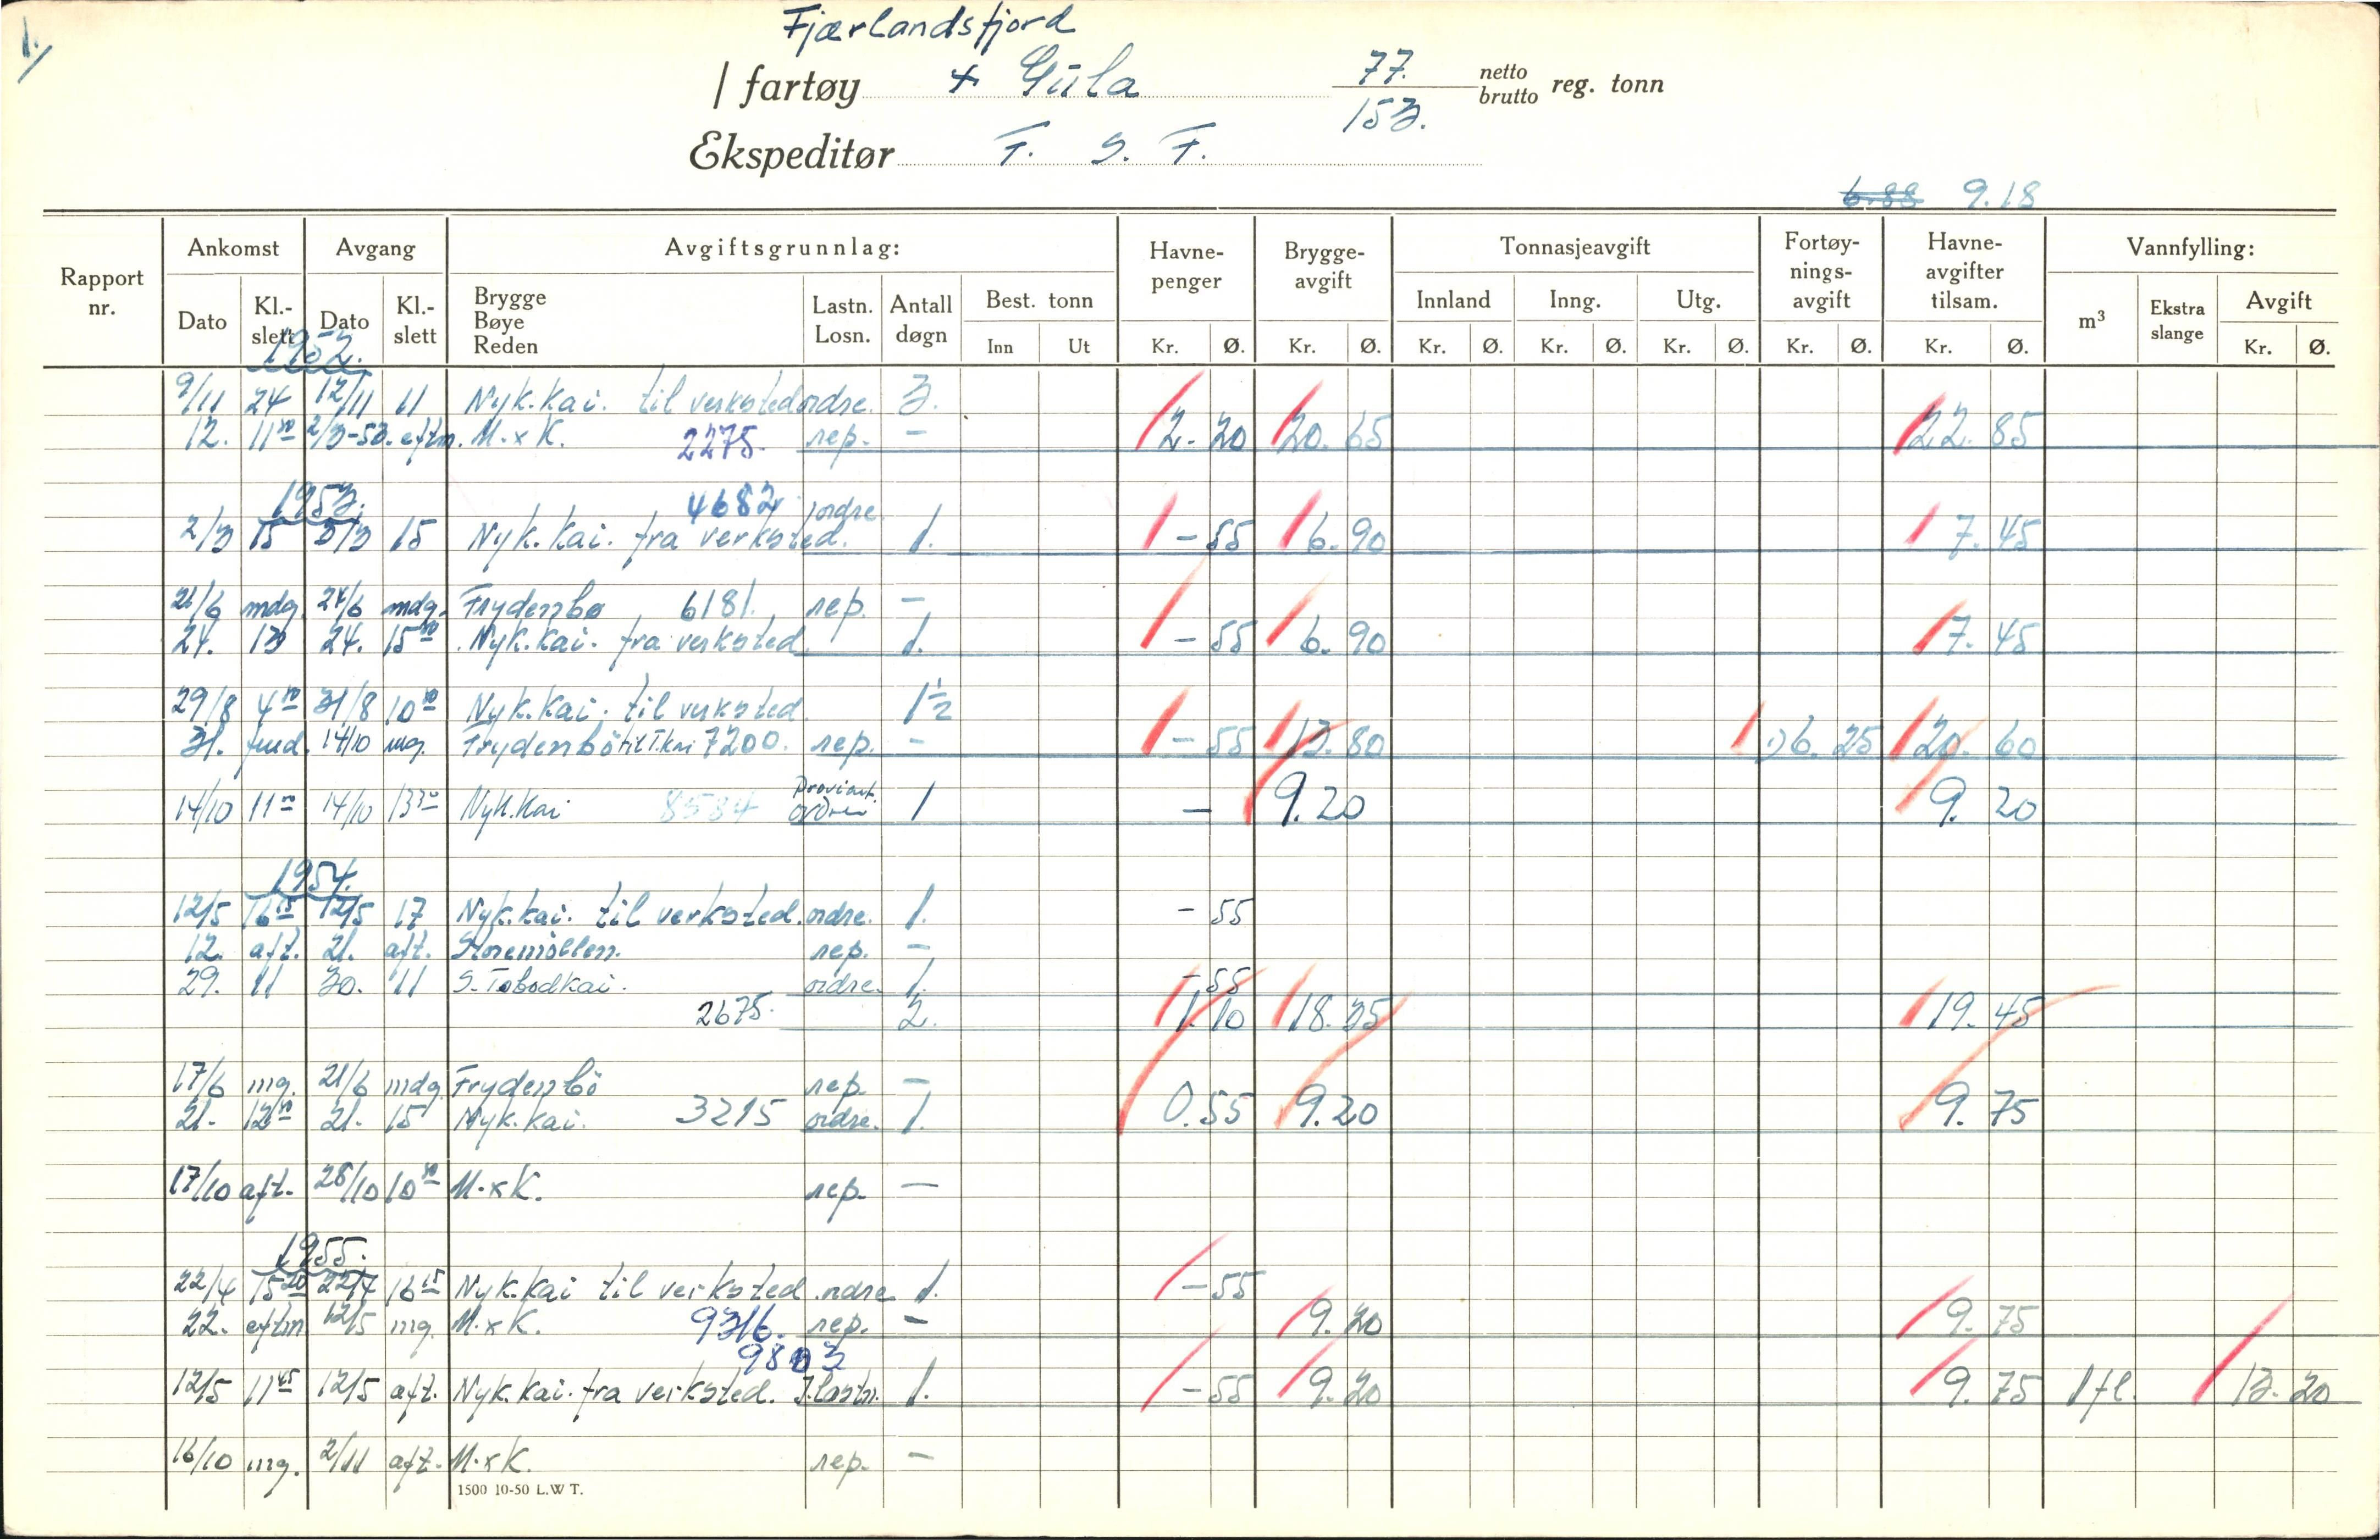 1.
Fjærlandsfjord
/ fartøy + Gula 77. netto
153. brutto reg. tonn
Ekspeditør F. S. F.
6.88 9.18
Rapport nr. Ankomst Avgang Avgiftsgrunnlag: Havne-penger Brygge-avgift Tonnasjeavgift Fortøy-nings-avgift Havne-avgifter tilsam. Vannfylling:
Dato Kl.-slett Dato Kl.-slett Brygge Bøye Reden Lastn. Losn. Antall døgn Best. tonn Innland Inng. Utg. m³ Ekstra slange Avgift
Inn Ut Kr. Ø. Kr. Ø. Kr. Ø. Kr. Ø. Kr. Ø. Kr. Ø. Kr. Ø. Kr. Ø.
1952.
9/11 24 12/11 11 Nyk.kai. til verksted ordre. 3.
12. 11 2/3-53. eftm. M.xK. 2275. rep. - 2.20 20.65 22.85
1953.
4682 ordre
2/3 15 3/3 15 Nyk.kai. fra verksted. 1. -55 6.90 7.45
mdg. 24/6 mdg. Frydenbø 6181. rep. -
24. 13 24. 15 Nyk.kai. fra verksted 1. -55 6.90 7.45
29/8 4 31/8 10 Nyk.kai. til verksted 1½
31. fmd. 14/10 mg. Frydenbö til T.kai 7200. rep. - -55 13.80 6.25 20.60
14/10 11 14/10 13 Nyk.kai 8584 Proviant. ordre 1 - 9.20 9.20
1954.
12/5 16 15 12/5 17 Nyk.kai. til verksted. ordre. 1. -55
12. aft. 21. aft. Storemöllen. rep. -
29. 11 30. 11 S. Tobodkai. ordre. 1. -55
2675. 2. 1.10 18.35 19.45
17/6 mg. 21/6 mdg Frydenbö rep. -
21. 12 21. 15 Nyk.kai. 3215 ordre. 1. 0.55 9.20 9.75
17/10 aft. 28/10 10 M.xK. rep. -
1955.
22/4 15 20 22/4 16 15 Nyk.kai til verksted. ordre 1. -55
22. eftm 12/5 mg. M.xK. 9316. rep. - 9.20 9.75
9803
12/5 11 45 12/5 aft. Nyk.kai. fra verksted. 1. -55 9.20 9.75 1 fl. 13.20
16/10 mg. 2/11 aft. M.xK. rep. -
1500 10-50 L.W T.